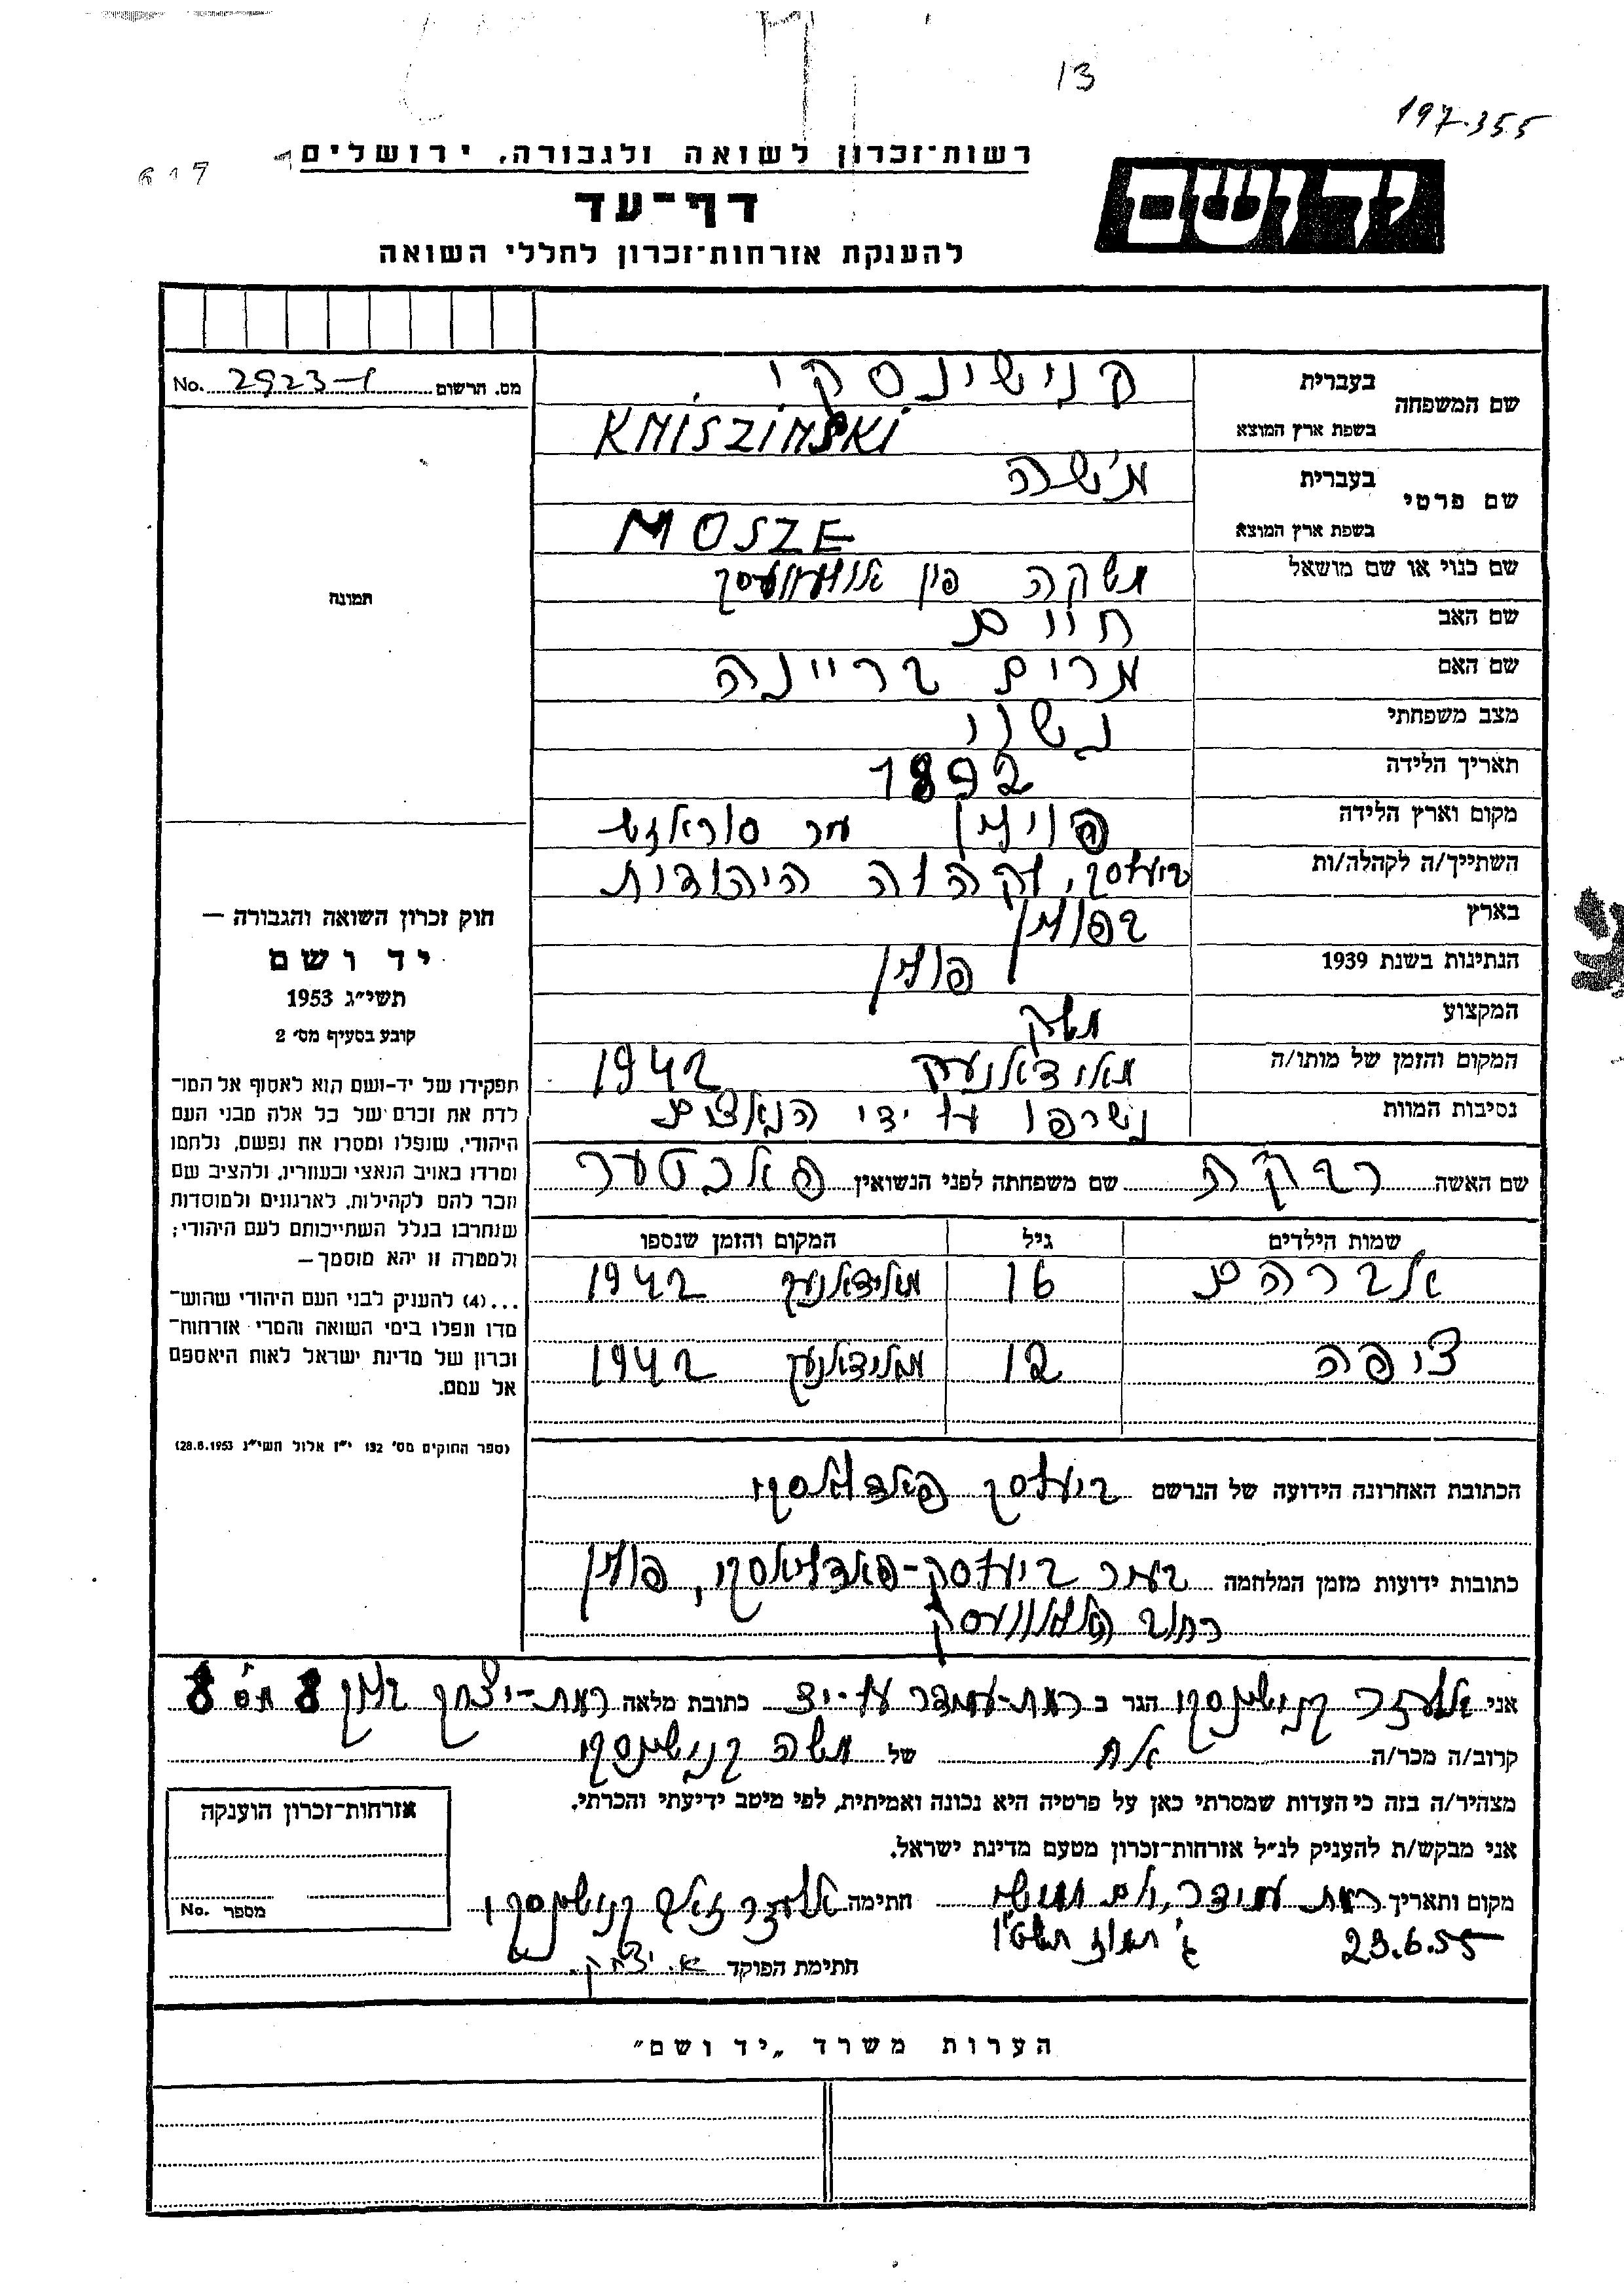 13
197.355
רשות־זכרון לשואה ולגבורה, ירושלים
617
יד ושם
דף־עד
להענקת אזרחות־זכרון לחללי השואה
מס. הרשום No. 2923-1
שם המשפחה
בעברית קנישינסקי
בשפת ארץ המוצא KNISZINSKI
שם פרטי
בעברית משה
בשפת ארץ המוצא MOSZE
שם כנוי או שם מושאל משקה פון
שם האב חיים
שם האם מרים בריינה
מצב משפחתי נשוי
תאריך הלידה 1892
מקום וארץ הלידה פוילין עיר סוראזש
השתייך/ה לקהלה/ות ביעלסק, הקהלה היהודית
בארץ בפולין
הנתינות בשנת 1939 פולין
המקצוע
המקום והזמן של מותו/ה מאידאנעק 1942
נסיבות המוות נשרפו על ידי הנאצים
תמונה
חוק זכרון השואה והגבורה —
יד ושם
תשי״ג 1953
קובע בסעיף מס׳ 2
תפקידו של יד-ושם הוא לאסוף אל המו־
לדת את זכרם של כל אלה מבני העם
היהודי, שנפלו ומסרו את נפשם, נלחמו
ומרדו באויב הנאצי ובעוזריו, ולהציב שם
וזכר להם לקהילות, לארגונים ולמוסדות
שנחרבו בגלל השתייכותם לעם היהודי;
ולמטרה זו יהא מוסמך—
...(4) להענק לבני העם היהודי שהוש־
מדו ונפלו בימי השואה והמרי אזרחות־
זכרון של מדינת ישראל לאות היאספם
אל עמם.
(ספר החוקים מס׳ 132 י״ז אלול תשי״ג 28.8.1953)
שם האשה רבקה שם משפחתה לפני הנשואין פאכטער
שמות הילדים גיל המקום והזמן שנספו
אברהם 16 מאידאנעק 1942
ציפה 12 מאידאנעק 1942
הכתובת האחרונה הידועה של הנרשם ביעלסק פאדלאסקי
כתובות ידועות מזמן המלחמה בעיר ביעלסק-פאדליאסקי, פולין
רחוב
אני אלעזר קנישינסקי הגר ב רמת-עמידר על-יד כתובת מלאה רמת-יצחק בלוק 8 מס׳ 8
קרוב/ה מכר/ה אח של משה קנישינסקי
מצהיר/ה בזה כי העדות שמסרתי כאן על פרטיה היא נכונה ואמיתית, לפי מיטב ידיעתי והכרתי.
אני מבקש/ת להעניק לנ״ל אזרחות־זכרון מטעם מדינת ישראל.
מקום ותאריך רמת עמידר, יום חמישי חתימה אלעזר זאב קנישינסקי
23.6.55 ג׳ תמוז תשט״ו
חתימת הפוקד א. יצחק.
אזרחות־זכרון הוענקה
מספר No.
הערות משרד „יד ושם״